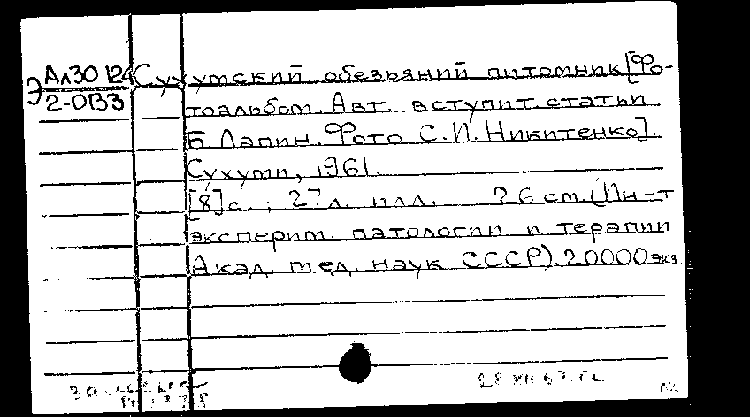 Ал30 124 Сухумский обезьяний питомник [Фо-
Э 2-ОВЗ тоальбом. Авт. вступит. статьи
Б Лапин. Фото С. И. Никитенко].
Сухуми, 1961.
[8] с.; 27 л. илл. 26 см. (Ин-т
эксперим. патологии и терапии
Акад. мед. наук СССР). 20000 экз